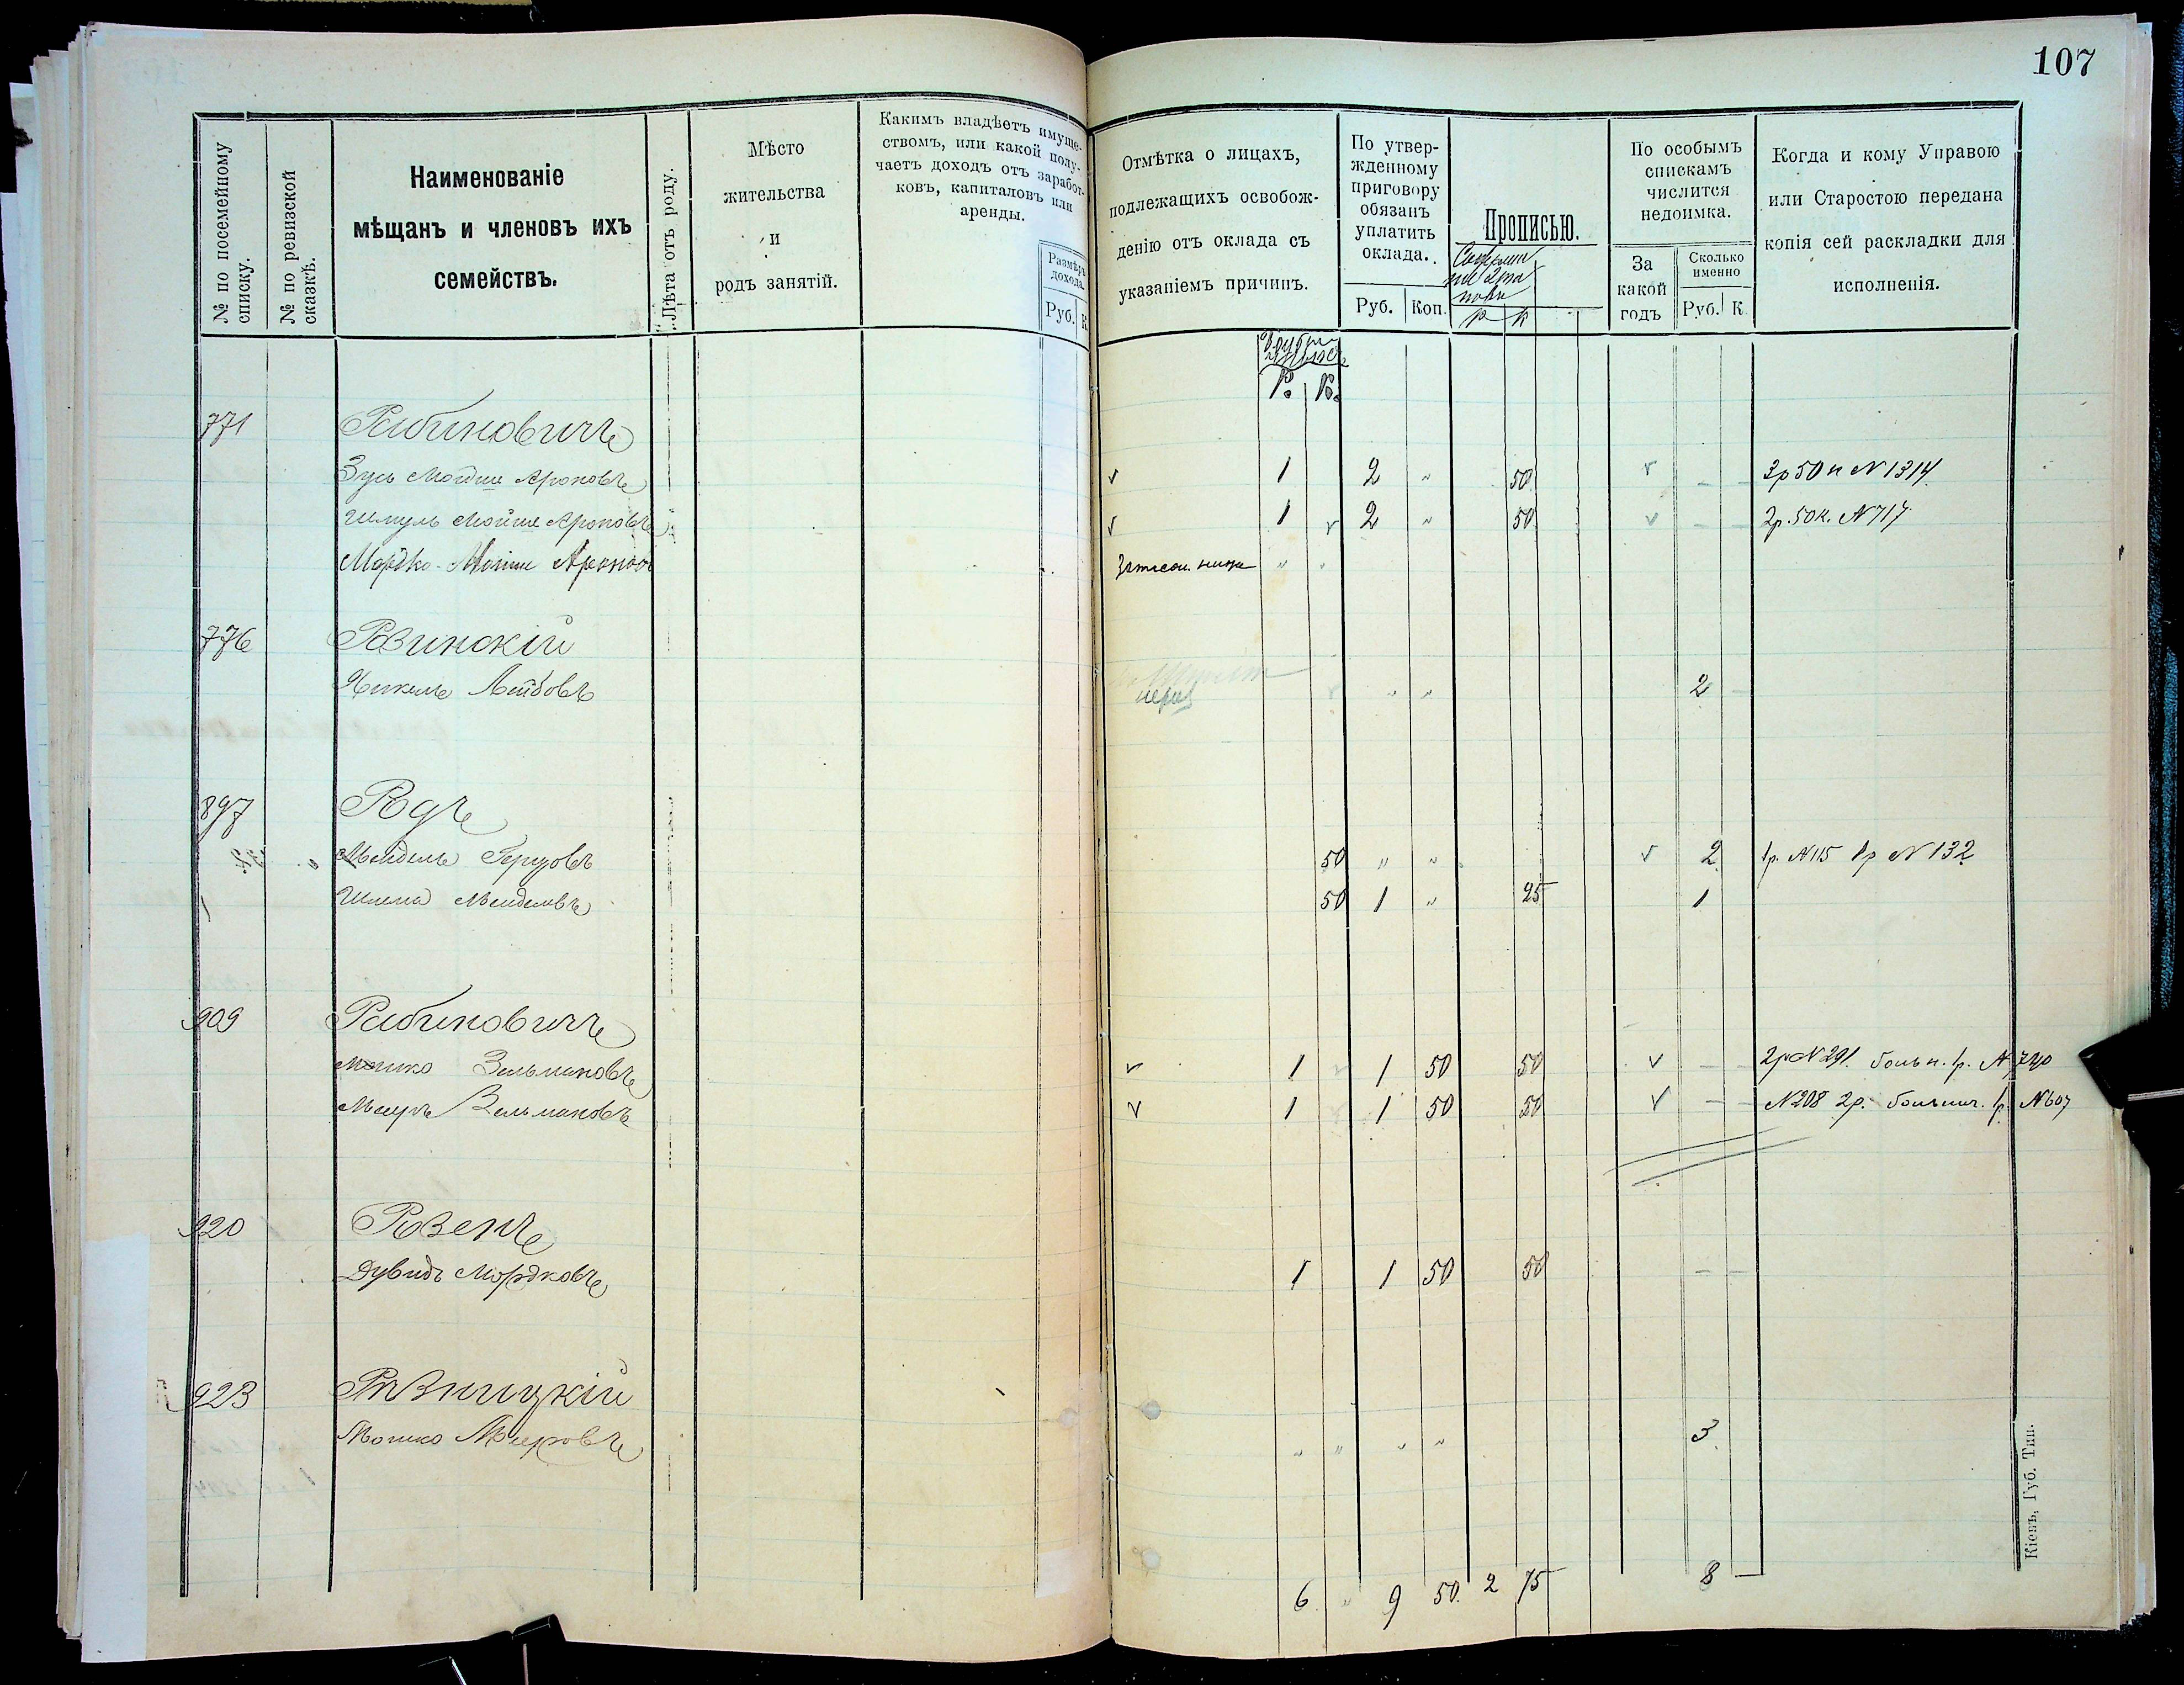 107
№ по посемейному списку.
№ по ревизской сказкѣ.
Наименованіе
мѣщанъ и членовъ ихъ
семействъ.
Лѣта отъ роду.
Мѣсто
жительства
и
родъ занятій.
Какимъ владѣетъ имуще-
ствомъ, или какой полу-
чаетъ доходъ отъ заработ-
ковъ, капиталовъ или
аренды.
Размѣръ
дохода.
Руб. К
Отмѣтка о лицахъ,
подлежащихъ освобож-
денію отъ оклада съ
указаніемъ причинъ.
По утвер-
жденному
приговору
обязанъ
уплатить
оклада.
Руб. Коп.
Прописью.
р к
По особымъ
спискамъ
числится
недоимка.
За
какой
годъ
Сколько
именно
Руб. К.
Когда и кому Управою
или Старостою передана
копія сей раскладки для
исполненія.
Р. К.
771 Рабиновичъ
Зусь Мойше Ароновъ v 1 2 " 50 v — — 3р 50 к N 1314
Шмуль Мойше Ароновъ v 1 v 2 " 50 v — — 2р. 50 к. N 717
Мордко-Мойше Аронов " "
776 Ровинскій
Янкель Лейбовъ " " 2 —
897 Родъ
Мендель Герцовъ 50 " " v 2 1р. N 115 1р N 132
Шлема Менделевъ 50 1 " 25 1
909 Рабиновичъ
Мошко Зельмановъ v 1 v 1 50 50 v — — 2р N 291. больн. 1р. N 740
Мееръ Зельмановъ v 1 1 50 50 v — — N 208 2р. больнич. 1р. N 607
920 Розенъ
Дувидъ Мордковъ 1 1 50 50 — —
923 Рѣзницкій
Мошко Мееровъ " " " " 3
6 " 9 50. 2 75 8 —
Кіевъ, Губ. Тип.